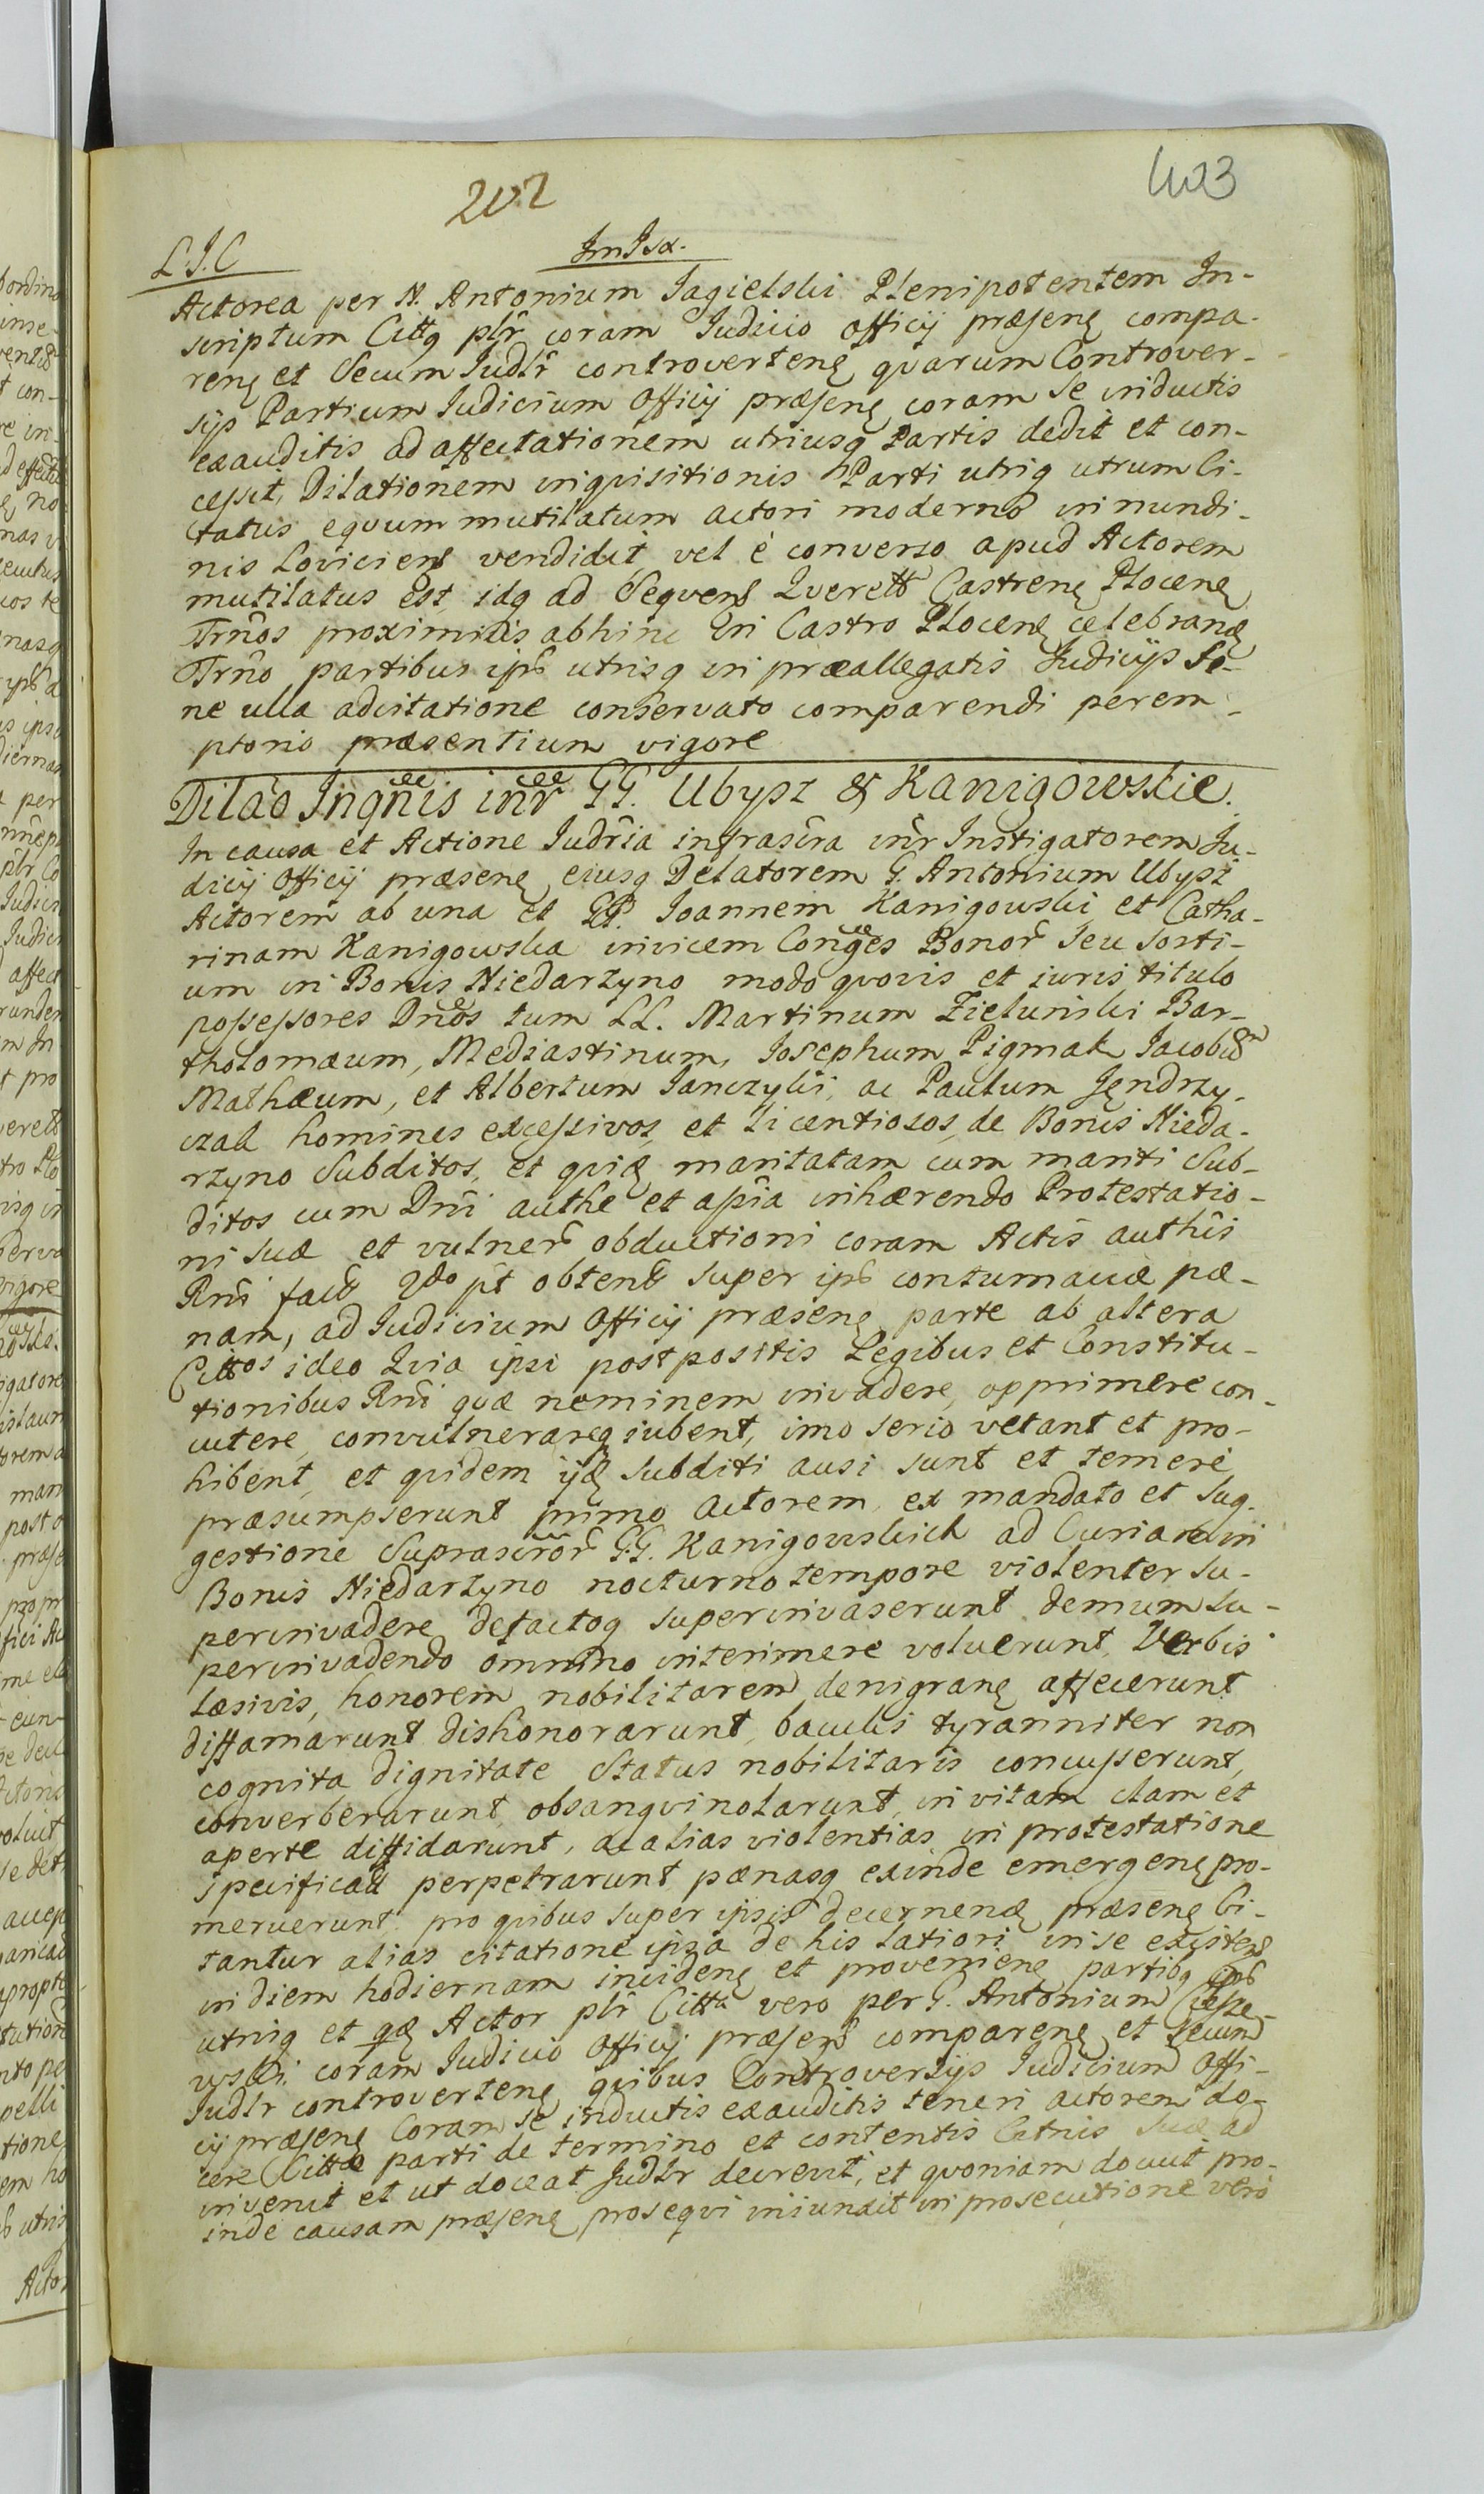 202
403
L.J.C
Actorea per N. Antonium Jagielski Plenipotentem In-
scriptum Cittq plr coram Judicio officij præsenę compa-
renę et Secum Judlr controvertenę quarum Controver-
sijs Partium Judicium Officij præsenę coram Se inductis
exauditis ad affectationem utriusq Partis dedit et con-
cessit, Dilationem inquisitionis Parti utriq utrum Ci-
tatus equum mutilatum actori moderno in nundi-
nis Loviciens vendidit vel è converso apud Actorem
mutilatus est idq ad Sequens Querett Castrenę Plocenę
Trnos proximius abhinc in Castro Plocenę celebranđ
Trno partibus ips utrisq in præallegatis Judicijs Si-
ne ulla adcitatione conservato comparendi perem-
ptorio præsentium vigore
Dilao Inqnis intr GG. Ubysz & Kanigowskie.
In causa et Actione Judria infrascra intr Instigatorem Ju-
dicij Officij præsenę eiusq Delatorem G. Antonium Ubysz
Actorem ab una et GG. Joannem Kanigowski et Catha-
rinam Kanigowska invicem Conges Bonor Seu Sorti-
um in Bonis Niedarzyno modo quovis et iuris titulo
possessores Dnos tum LL. Martinum Zielunski Bar-
tholomæum, Mediastinum, Josephum Pigmak Jacobum
Mathæum, et Albertum Janczyki, ac Paulum Jędrzy-
czak homines excessivos et licentiosos de Bonis Nieda-
rzyno Subditos, et quiđ maritatam cum mariti Sub-
ditos cum Dni authe et assia inhærendo Protestatio-
ni suæ et vulner obductioni coram Actis authis
Rni fact 2do pt obtent super ips contumaciæ pæ-
nam, ad Judicium Officij præsenę parte ab altera
Cittos ideo Quia ipsi postpositis Legibus et Constitu-
tionibus Rni quæ neminem invadere, opprimere con-
cutere, convulnerareq iubent, imo serio vetant et pro-
hibent, et quidem ijđ Subditi ausi sunt et temere
præsumpserunt primo actorem ex mandato et sug-
gestione Suprascror GG. Kanigowskich ad Curiam in
Bonis Niedarzyno nocturno tempore violenter su-
perinvadere defactoq superinvaserunt demum su-
perinvadendo omnino interimere voluerunt, Verbis
læsivis, honorem nobilitarem denigranę affecerunt
diffamarunt dishonorarunt, baculis tyranniter non
cognita dignitate Status nobilitaris concusserunt,
converberarunt, obsanguinolarunt, in vitam clam et
aperte diffidarunt, ac alias violentias in protestatione
specificatt perpetrarunt pænasq exinde emergenę pro-
meruerunt pro quibus super ipsis decernenđ præsenę Ci-
tantur alias citatione ipsa de his latiori in se existens
in diem hodiernam incidenę et provenienę partibq ips
utriq et qđ Actor plr Citta vero per G. Antonium
wski coram Judicio Officij præsens comparenę et Secum
Judlr controvertenę quibus Controversijs Judicium Offi-
cij præsenę Coram se inductis exauditis teneri actorem do-
cere Cittæ parti de termino et contentis Cítnis Suæ ad
invenit et ut doceat Judlr decrevit, et quoniam docuit pro-
inde causam præsenę prosequi iniunxit in prosecutione vero